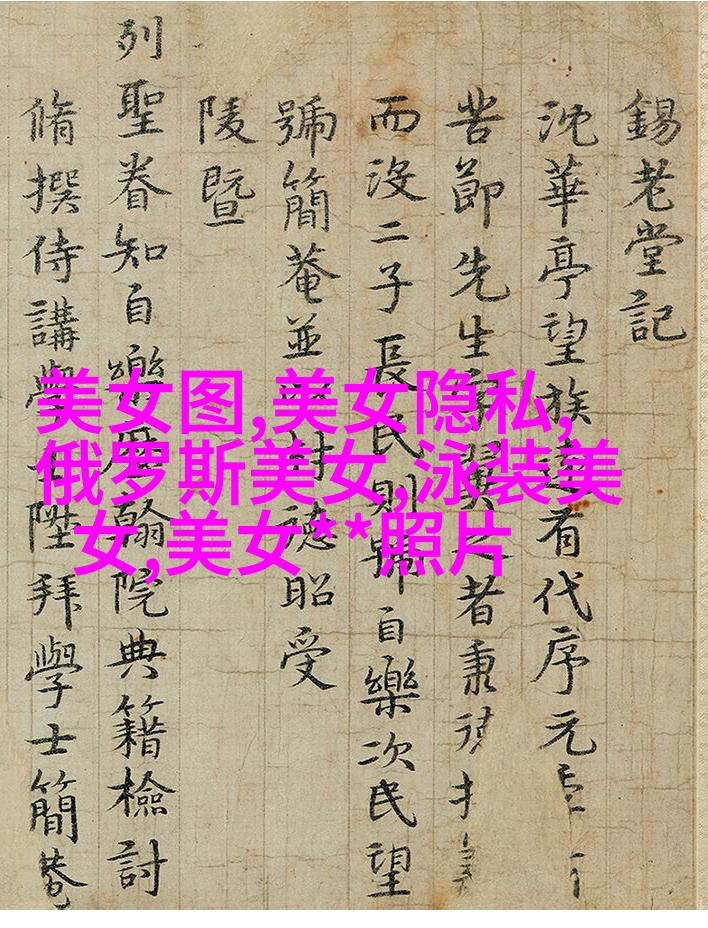 錫老堂記
沈華亭望族有代序元
苦節先生翼之者秉
而沒二子長民則號自樂次民望
號簡菴並德昭受
陵暨
列聖眷知自樂歷翰院典籍檢討
脩撰侍講學士陞拜學士簡菴
美女图,美女隐私,
俄罗斯美女,泳装美
女,美女**照片